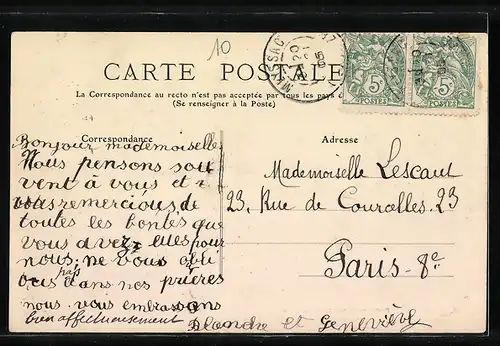 10
MUSSAC
17
CARTE POSTALE
5
5
POSTES
POSTES
La Correspondance au recto n'est pas acceptée par tous les pays
(Se renseigner à la Poste)
Correspondance
Adresse
Bonjour mademoiselle
Nous pensons sou
vent à vous et
vous remercious de
toutes les bontés que
vous avez eues pour
nous; ne vous oubli
ous pas dans nos prières
nous vous embrassons
bien affectueusement
Blandre et Geneviève
Mademoiselle Lescaut
23, Rue de Courcelles. 23
Paris-8e